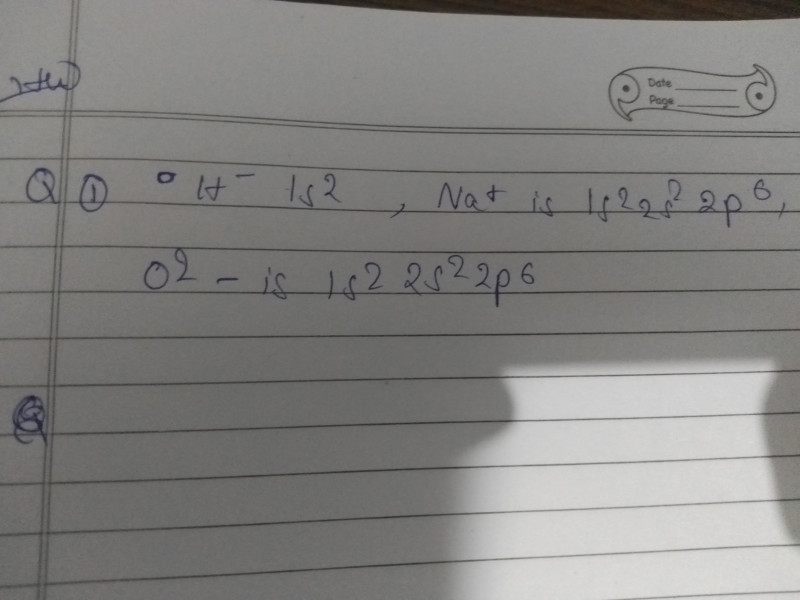 Date
Page
Q ① H⁻ 1s², Na⁺ is 1s² 2s² 2p⁶,
O² - is 1s² 2s² 2p⁶